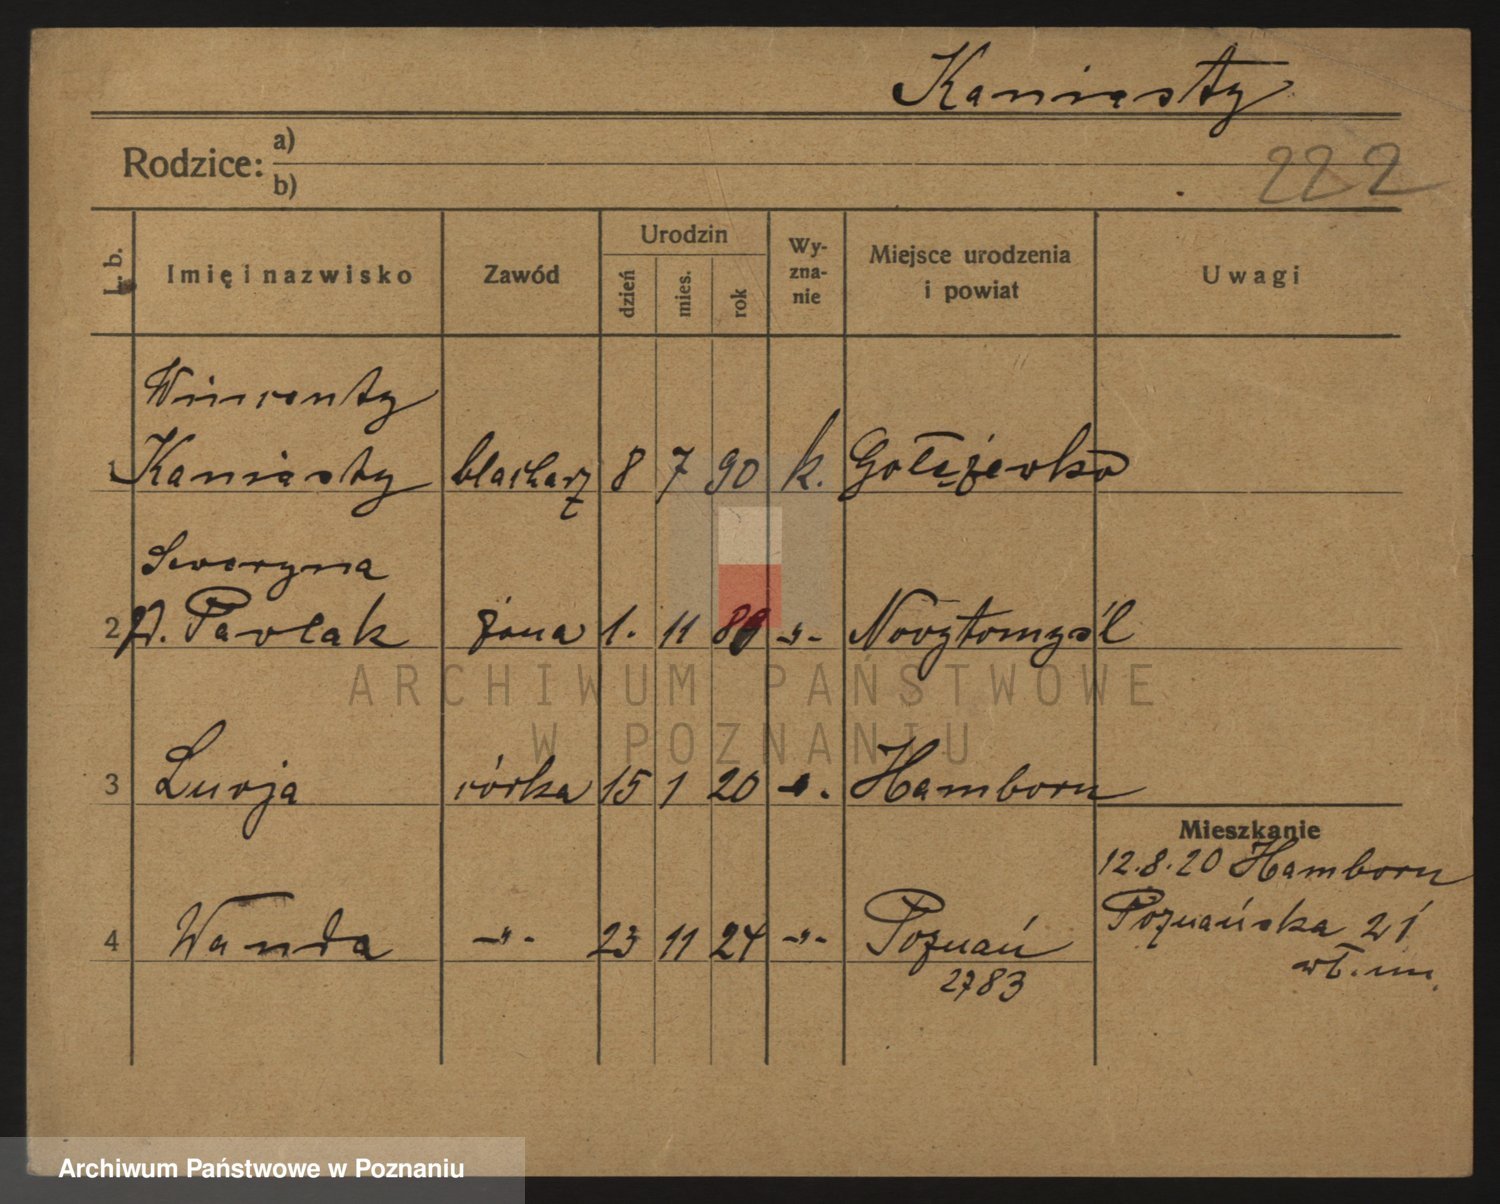 Kaniasty
Rodzice: a)
b)
222
L. b. Imię i nazwisko Zawód Urodzin dzień mies. rok Wy-zna-nie Miejsce urodzenia i powiat Uwagi
Wincenty
1 Kaniasty blacharz 8 7 90 k. Gołą
Seweryna
2 Pawlak żona 1. 11 89 -"- Nowytomyśl
3 Lucja córka 15 1 20 -"- Hamborn
Mieszkanie
12.8.20 Hamborn
4 Wanda -"- 23 11 24 -"- Poznań
Poznańska 21
2783
ARCHIWUM PAŃSTWOWE
W POZNANIU
Archiwum Państwowe w Poznaniu